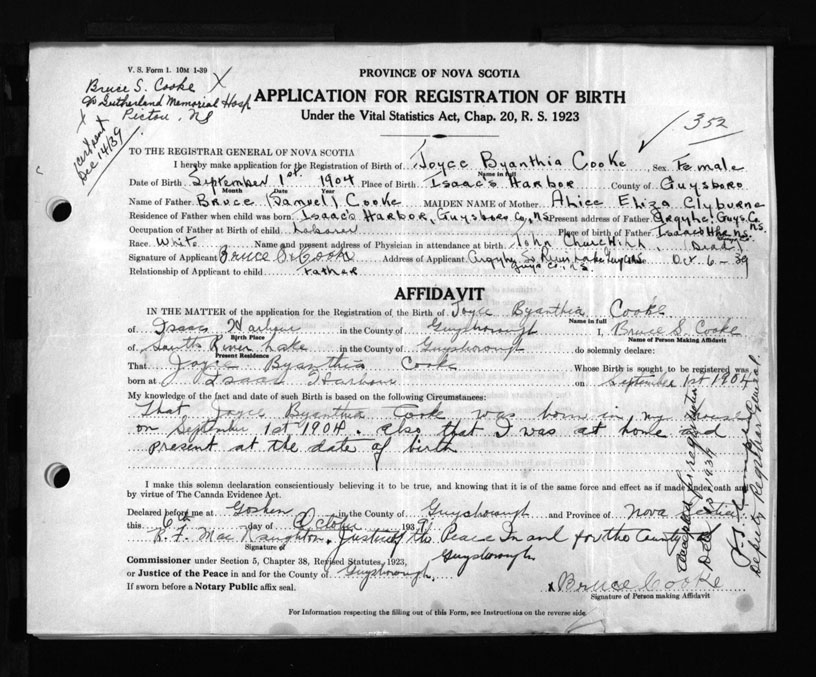 V. S. Form 1. 10M 1-39
Bruce S. Cooke X
c/o Sutherland Memorial Hosp
Pictou, NS
X
cert sent
Dec 14/39
PROVINCE OF NOVA SCOTIA
APPLICATION FOR REGISTRATION OF BIRTH
Under the Vital Statistics Act, Chap. 20, R. S. 1923
✓ 352
TO THE REGISTRAR GENERAL OF NOVA SCOTIA
I hereby make application for the Registration of Birth of Joyce Byanthia Cooke Sex Female
Name in full
Date of Birth September 1st 1904 Place of Birth Isaac's Harbor County of Guysboro
Month Date Year
Name of Father Bruce (Samuel) Cooke MAIDEN NAME of Mother Alice Eliza Clyburne
Residence of Father when child was born Isaac's Harbor, Guysboro Co, NS Present address of Father Argyle, Guys. Co N.S.
Occupation of Father at Birth of child Laborer Place of birth of Father Isaac's Hbr N.S.
Race White Name and present address of Physician in attendance at birth John Churchill (Dead)
Signature of Applicant Bruce S. Cooke Address of Applicant So River Lake Guys Co, N.S. Oct. 6-39
Relationship of Applicant to child Father
AFFIDAVIT
IN THE MATTER of the application for the Registration of the Birth of Joyce Byanthia Cooke
Name in full
of Isaacs Harbour in the County of Guysborough I, Bruce S. Cooke
Birth Place Name of Person Making Affidavit
of South River Lake in the County of Guysborough do solemnly declare:
Present Residence
That Joyce Byanthia Cooke Whose Birth is sought to be registered was
born at Isaacs Harbour on September 1st 1904
My knowledge of the fact and date of such Birth is based on the following Circumstances:
That Joyce Byanthia Cooke was born in my house
on September 1st 1904. also that I was at home and
present at the date of birth
I make this solemn declaration conscientiously believing it to be true, and knowing that it is of the same force and effect as if made under oath and
by virtue of The Canada Evidence Act.
Declared before me at Goshen in the County of Guysborough and Province of Nova Scotia
this 6th day of October 1939
R. F. MacNaughton, Justice of the Peace In and for the County
Guysborough
Signature of
Commissioner under Section 5, Chapter 38, Revised Statutes, 1923,
or Justice of the Peace in and for the County of Guysborough
If sworn before a Notary Public affix seal.
x Bruce Cooke
Signature of Person making Affidavit
For Information respecting the filling out of this Form, see Instructions on the reverse side.
Accepted for registration
Deputy Registrar General.